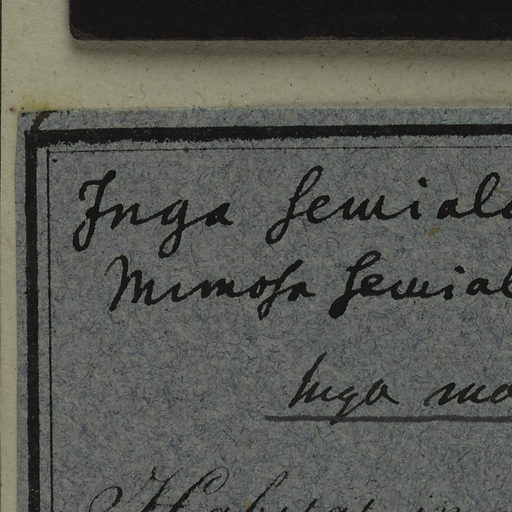 Inga semial
Mimosa semial
Inga ma
Habitat in